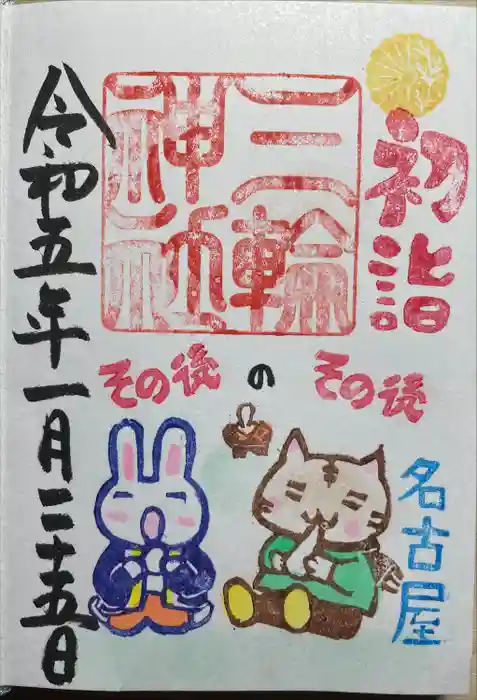 初詣
三輪
神社
その後のその後
名古屋
令和五年一月二十五日